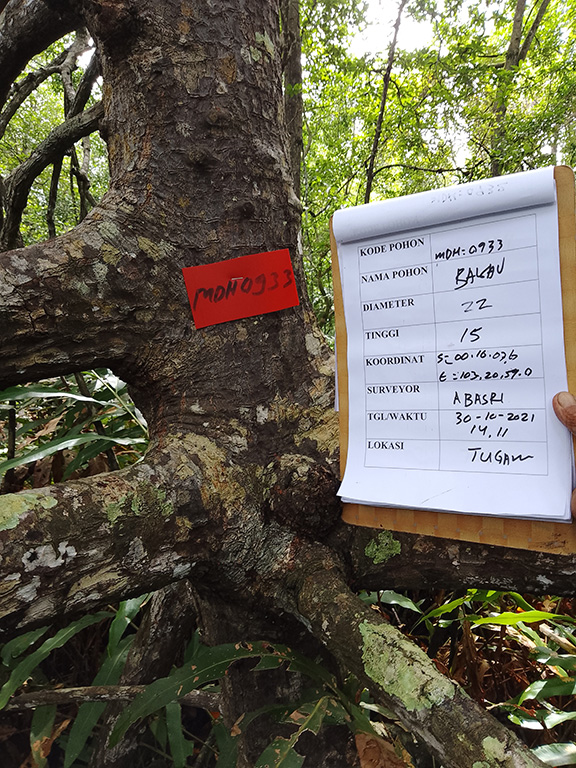 MDH0933
KODE POHON MDH=0933
NAMA POHON BAKAU
DIAMETER 22
TINGGI 15
KOORDINAT S=00.10.07,6
E=103,20,59.0
SURVEYOR ABASRI
TGL/WAKTU 30-10-2021
14,11
LOKASI